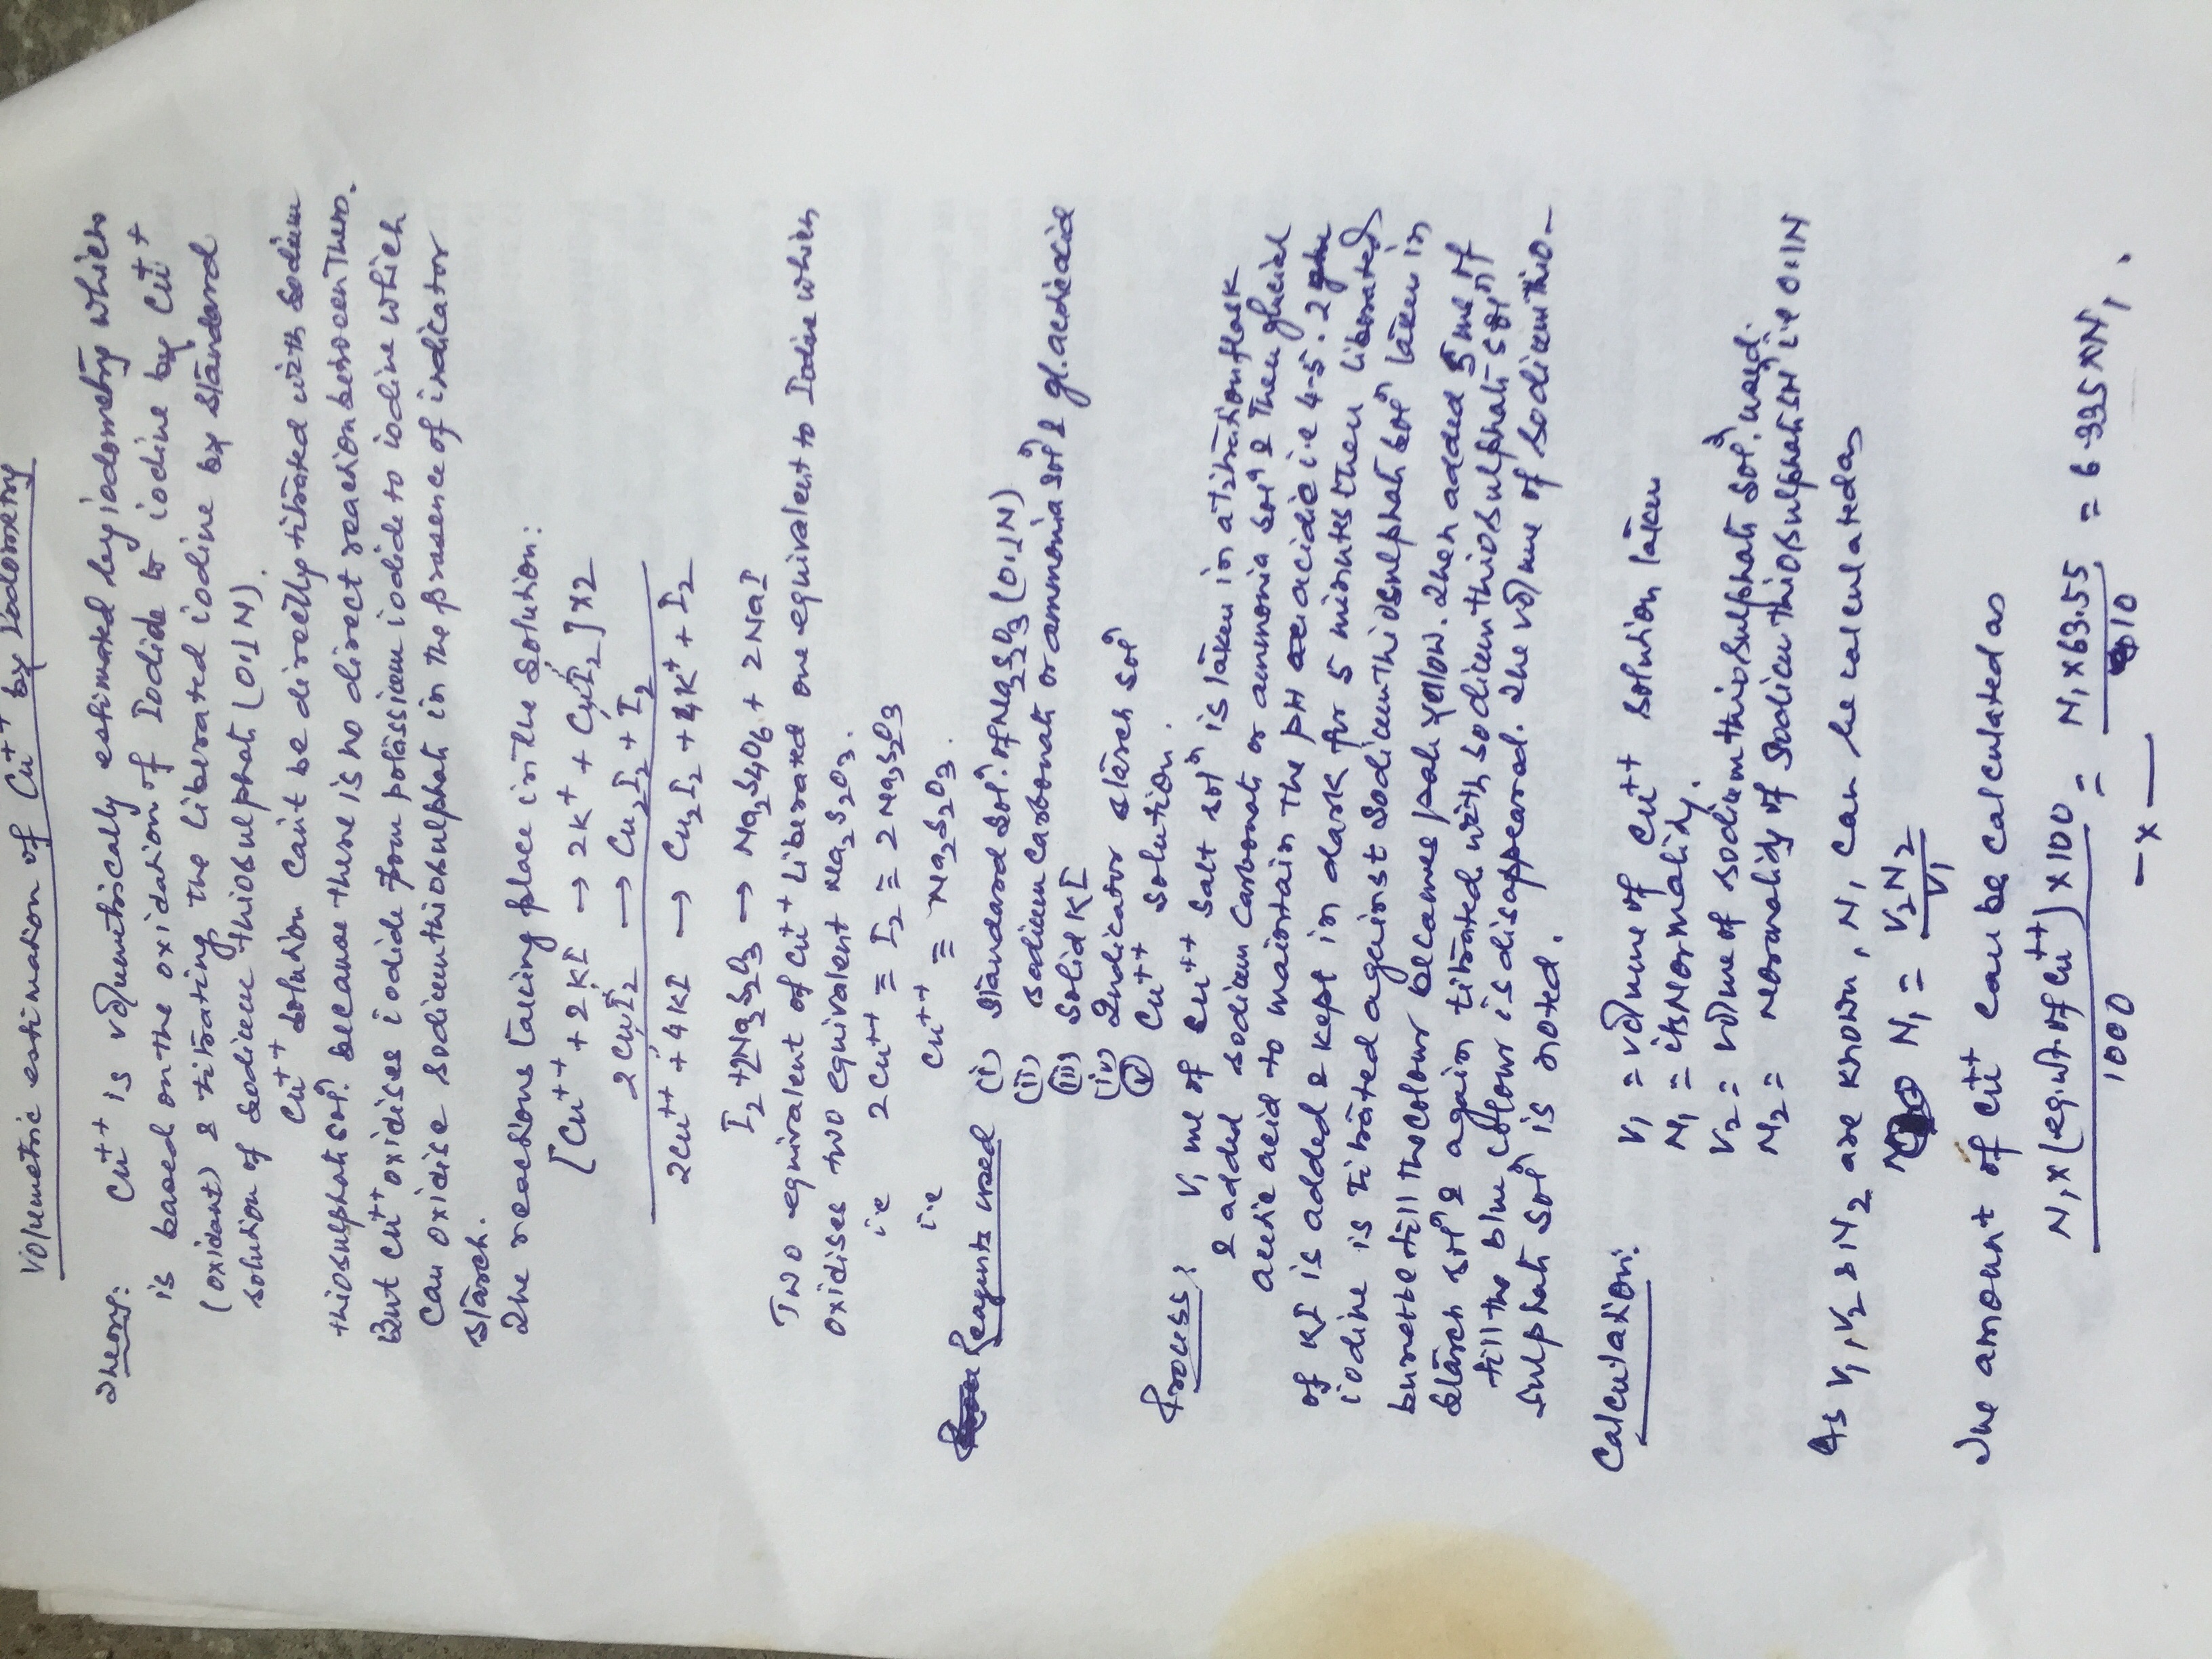 Volumetric estimation of Cu++ by Iodometry
Theory: Cu++ is volumetrically estimated by iodometry which
is based on the oxidation of Iodide to iodine by Cu++
(oxidant) & titrating the liberated iodine by standard
solution of sodium thiosulphat (0.1N).
Cu++ solution can't be directly titrated with sodium
thiosulphat soln. because there is no direct reaction between them.
But Cu++ oxidises iodide from potassium iodide to iodine which
can oxidise sodium thiosulphat in the presence of indicator
starch.
The reactions taking place in the solution:
[Cu++ + 2KI → 2K+ + CuI2] x2
2CuI2 → Cu2I2 + I2
2Cu++ + 4KI → Cu2I2 + 4K+ + I2
I2 + 2Na2S2O3 → Na2S4O6 + 2NaI
Two equivalent of Cu++ liberated one equivalent to Iodine which
oxidises two equivalent Na2S2O3.
i.e 2Cu++ ≡ I2 ≡ 2Na2S2O3
i.e Cu++ ≡ Na2S2O3.
Reagents used (i) Standard soln. of Na2S2O3 (0.1N)
(ii) sodium carbonat or ammonia soln & gl. aceticacid
(iii) Solid KI
(iv) Indicator starch soln
(v) Cu++ solution.
Process: V1 ml of Cu++ salt soln is taken in a titration flask
& added sodium carbonat or ammonia soln & then glacial
acetic acid to maintain the pH acidic i.e 4-5. 2 gm
of KI is added & kept in dark for 5 minutes then liberated
iodine is titrated against sodium thiosulphat soln taken in
burette till the colour becames pale yellow. Then added 5 ml of
starch soln & again titrated with sodium thiosulphat soln
till the blue colour is disappeared. The volume of sodium thio-
sulphat soln is noted.
Calculation: V1 = volume of Cu++ solution taken
N1 = its Normality.
V2 = volume of sodium thiosulphat soln. used.
N2 = Normality of Sodium thiosulphat i.e 0.1N
As V1, V2 & N2 are known, N1 can be calculated as
N1 = V2N2 / V1
The amount of Cu++ can be calculated as
N1 x (eq. wt of Cu++) x 100 / 1000 = N1 x 63.55 / 10 = 6.335 x N1.
— x —